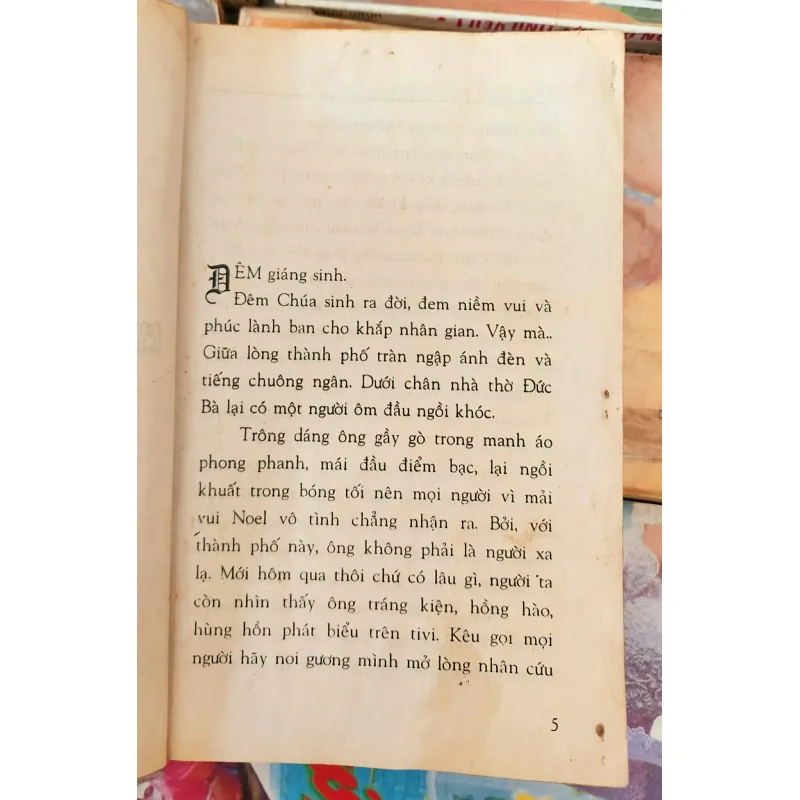 ĐÊM giáng sinh.
Đêm Chúa sinh ra đời, đem niềm vui và
phúc lành ban cho khắp nhân gian. Vậy mà..
Giữa lòng thành phố tràn ngập ánh đèn và
tiếng chuông ngân. Dưới chân nhà thờ Đức
Bà lại có một người ôm đầu ngồi khóc.
Trông dáng ông gầy gò trong manh áo
phong phanh, mái đầu điểm bạc, lại ngồi
khuất trong bóng tối nên mọi người vì mải
vui Noel vô tình chẳng nhận ra. Bởi, với
thành phố này, ông không phải là người xa
lạ. Mới hôm qua thôi chứ có lâu gì, người ta
còn nhìn thấy ông tráng kiện, hồng hào,
hùng hồn phát biểu trên tivi. Kêu gọi mọi
người hãy noi gương mình mở lòng nhân cứu
5